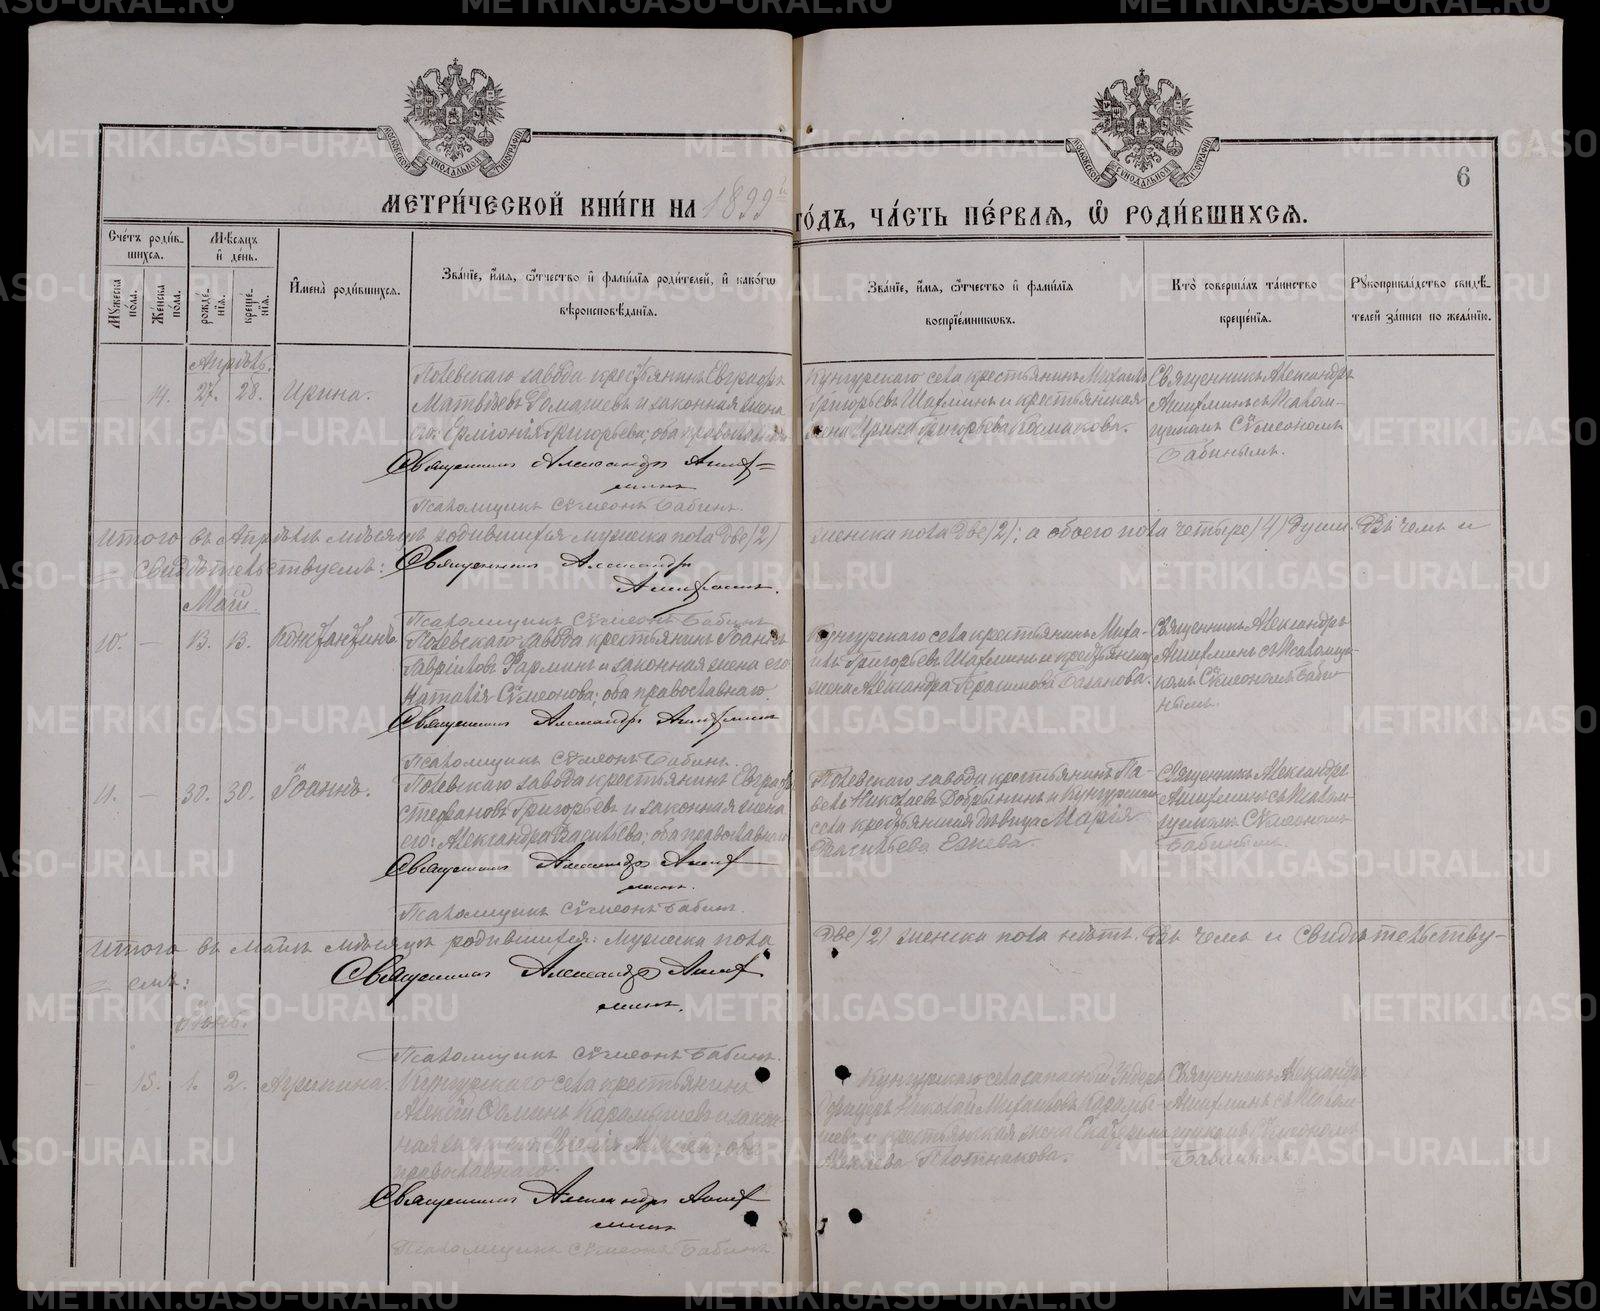 МЕТРИ́ЧЕСКОЙ КНИ́ГИ НА 1899й ГО́ДЪ, ЧА́СТЬ ПЕ́РВАЯ, Ѡ РОДИ́ВШИХСЯ.
6
Сче́тъ роди́вшихся.
Мѣ́сяцъ и де́нь.
Му́жеска по́ла.
Же́нска по́ла.
рожде́нїя.
креще́нїя.
Имена̀ роди́вшихся.
Зва́нїе, и́мя, ѻ́тчество и фами́лїя роди́телей, и како́гѡ
вѣроисповѣ́данїя.
Зва́нїе, и́мя, ѻ́тчество и фами́лїя
воспрїе́мникѡвъ.
Кто̀ соверша́лъ та́инство
креще́нїя.
Рукоприкла́дство свидѣ́телей за́писи по жела́нїю.
Апрѣль.
— 14. 27. 28. Ирина.
Полевскаго завода крестьянинъ Евграфъ
Матвѣевъ и законная жена
его: Григорьева; оба православнаго
Священникъ Александръ Анифминъ
Псаломщикъ Сѵмеонъ Бабинъ.
Кунгурскаго села крестьянинъ Михаилъ
Григорьевъ Шахминъ и крестьянская
жена Ирина Григорьева
Священникъ Александръ
Анифминъ съ Псаломщикомъ Сѵмеономъ
Бабинымъ.
Итого въ Апрѣлѣ мѣсяцѣ родившихся мужеска пола две (2) женска пола две (2); а обоего пола четыре (4) души. Въ чемъ и
свидѣтельствуемъ: Священникъ Александръ
Анифминъ.
Псаломщикъ Сѵмеонъ Бабинъ
Май.
10. — 13. 13. Константинъ
Полевскаго завода крестьянинъ Іоаннъ
Гавріиловъ и законная жена его
Наталія Сѵмеонова; оба православнаго.
Священникъ Александръ Анифминъ
Псаломщикъ Сѵмеонъ Бабинъ.
Кунгурскаго села крестьянинъ Михаилъ Григорьевъ Шахминъ и крестьянская
жена Александра Герасимова
Священникъ Александръ
Анифминъ съ Псаломщикомъ Сѵмеономъ Бабинымъ.
11. — 30. 30. Іоаннъ.
Полевскаго завода крестьянинъ Евграфъ
Стефановъ Григорьевъ и законная жена
его: Александра Васильева; оба православнаго
Священникъ Александръ Анифминъ.
Псаломщикъ Сѵмеонъ Бабинъ.
Полевскаго завода крестьянинъ Павелъ Николаевъ Добрынинъ и Кунгурскаго
села крестьянская дѣвица Марія
Васильева
Священникъ Александръ
Анифминъ съ Псаломщикомъ Сѵмеономъ
Бабинымъ.
Итого въ Маѣ мѣсяцѣ родившихся: мужеска пола две (2) женска пола нѣтъ. Въ чемъ и свидѣтельствуемъ:
Священникъ Александръ Анифминъ.
Псаломщикъ Сѵмеонъ Бабинъ.
Іюнь.
— 15. 1. 2. Агрипина.
Кунгурскаго села крестьянинъ
Алексій Карамышевъ и законная оба
православнаго.
Священникъ Александръ Анифминъ
Псаломщикъ Сѵмеонъ Бабинъ
Кунгурскаго села запасный Унтеръ
Офицеръ Николай Михаиловъ Карамышевъ и крестьянская жена Екатерина
Плотникова.
Священникъ Александръ
Анифминъ съ Псаломщикомъ Сѵмеономъ
Бабинымъ
METRIKI.GASO-URAL.RU